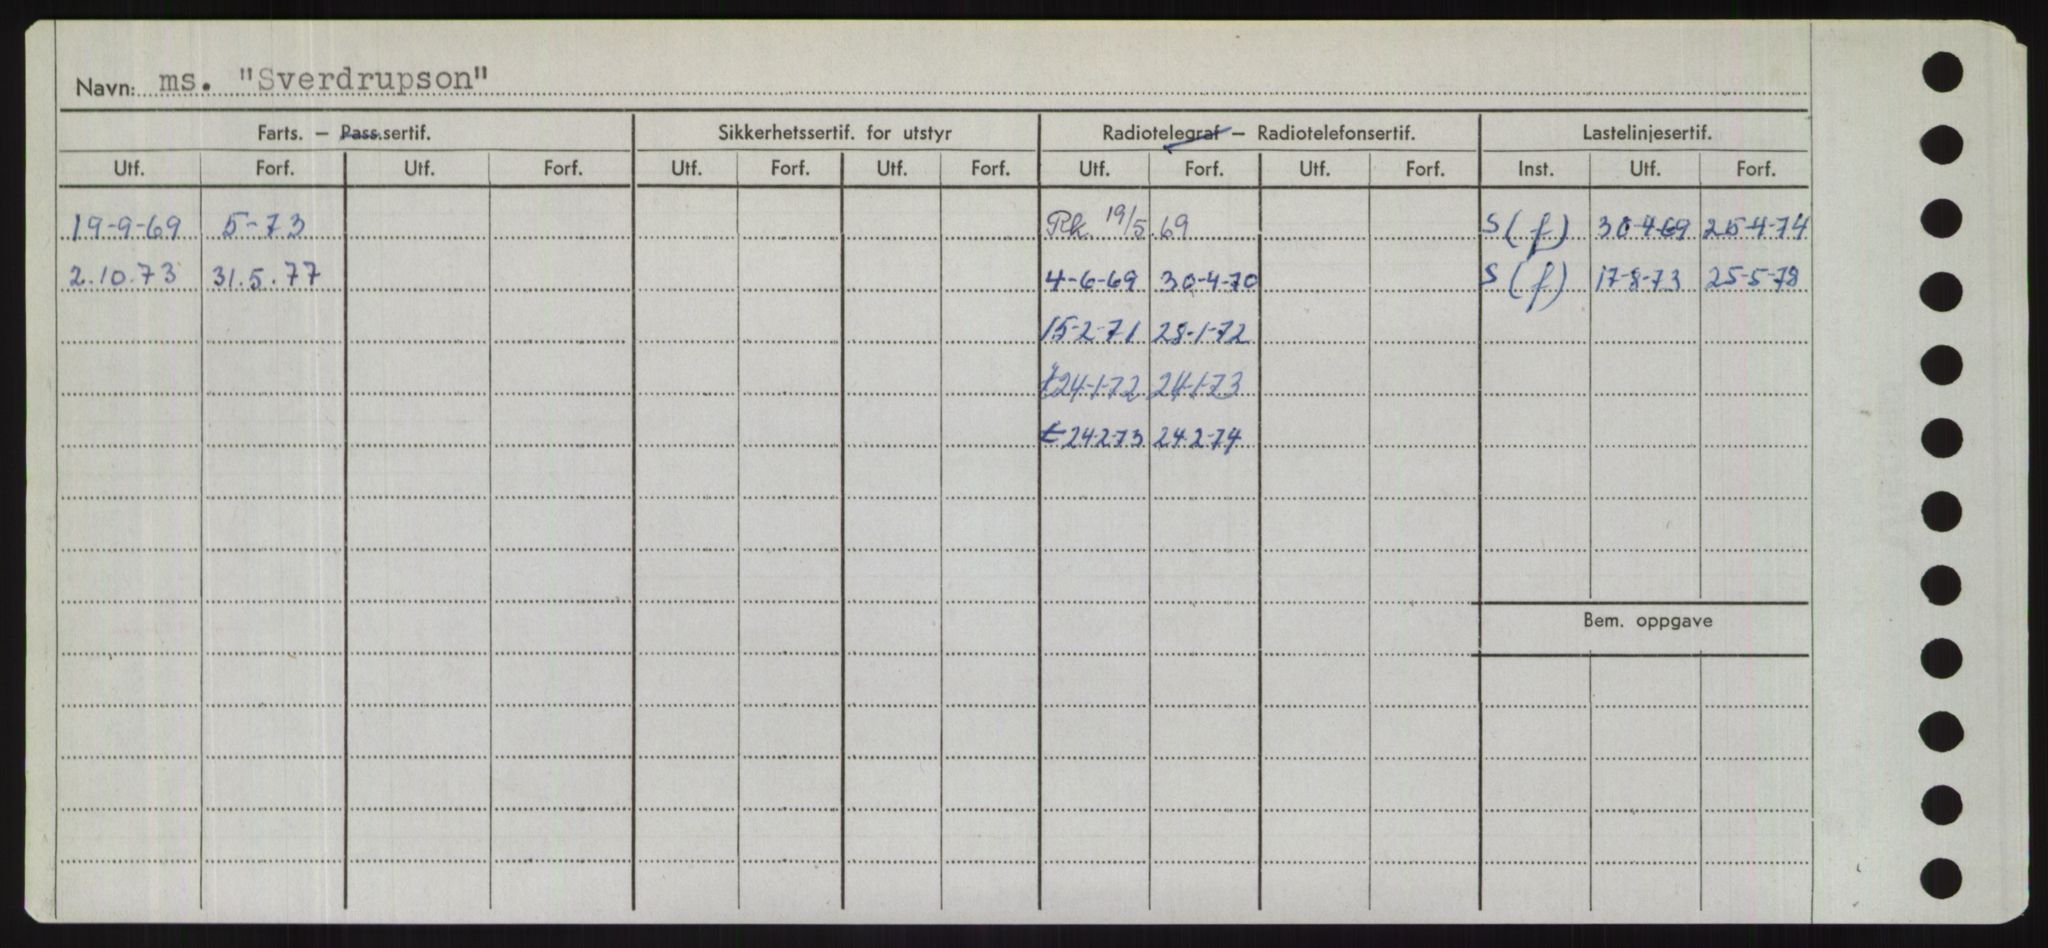 Navn: ms. "Sverdrupson"
Farts. — Pass.sertif. Sikkerhetssertif. for utstyr Radiotelegraf — Radiotelefonsertif. Lastelinjesertif.
Utf. Forf. Utf. Forf. Utf. Forf. Utf. Forf. Utf. Forf. Utf. Forf. Inst. Utf. Forf.
19-9-69 5-73 Rk. 19/5.69 S(f) 30-4-69 25-4-74
2.10.73 31.5.77 4-6-69 30-4-70 S(f) 17-8-73 25-5-78
15-2-71 28-1-72
t 24-1-72 24-1-73
t 24-2-73 24-2-74
Bem. oppgave